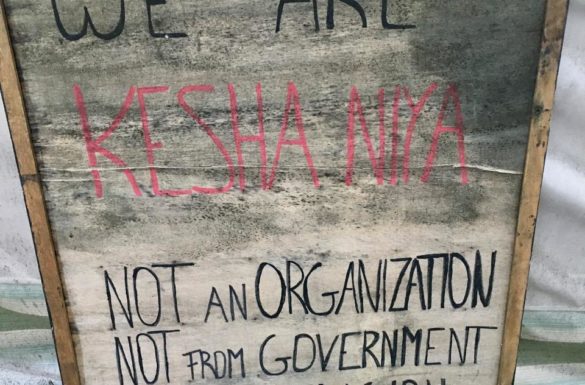 WE ARE
KESHA NIYA
NOT AN ORGANIZATION
NOT FROM GOVERNMENT